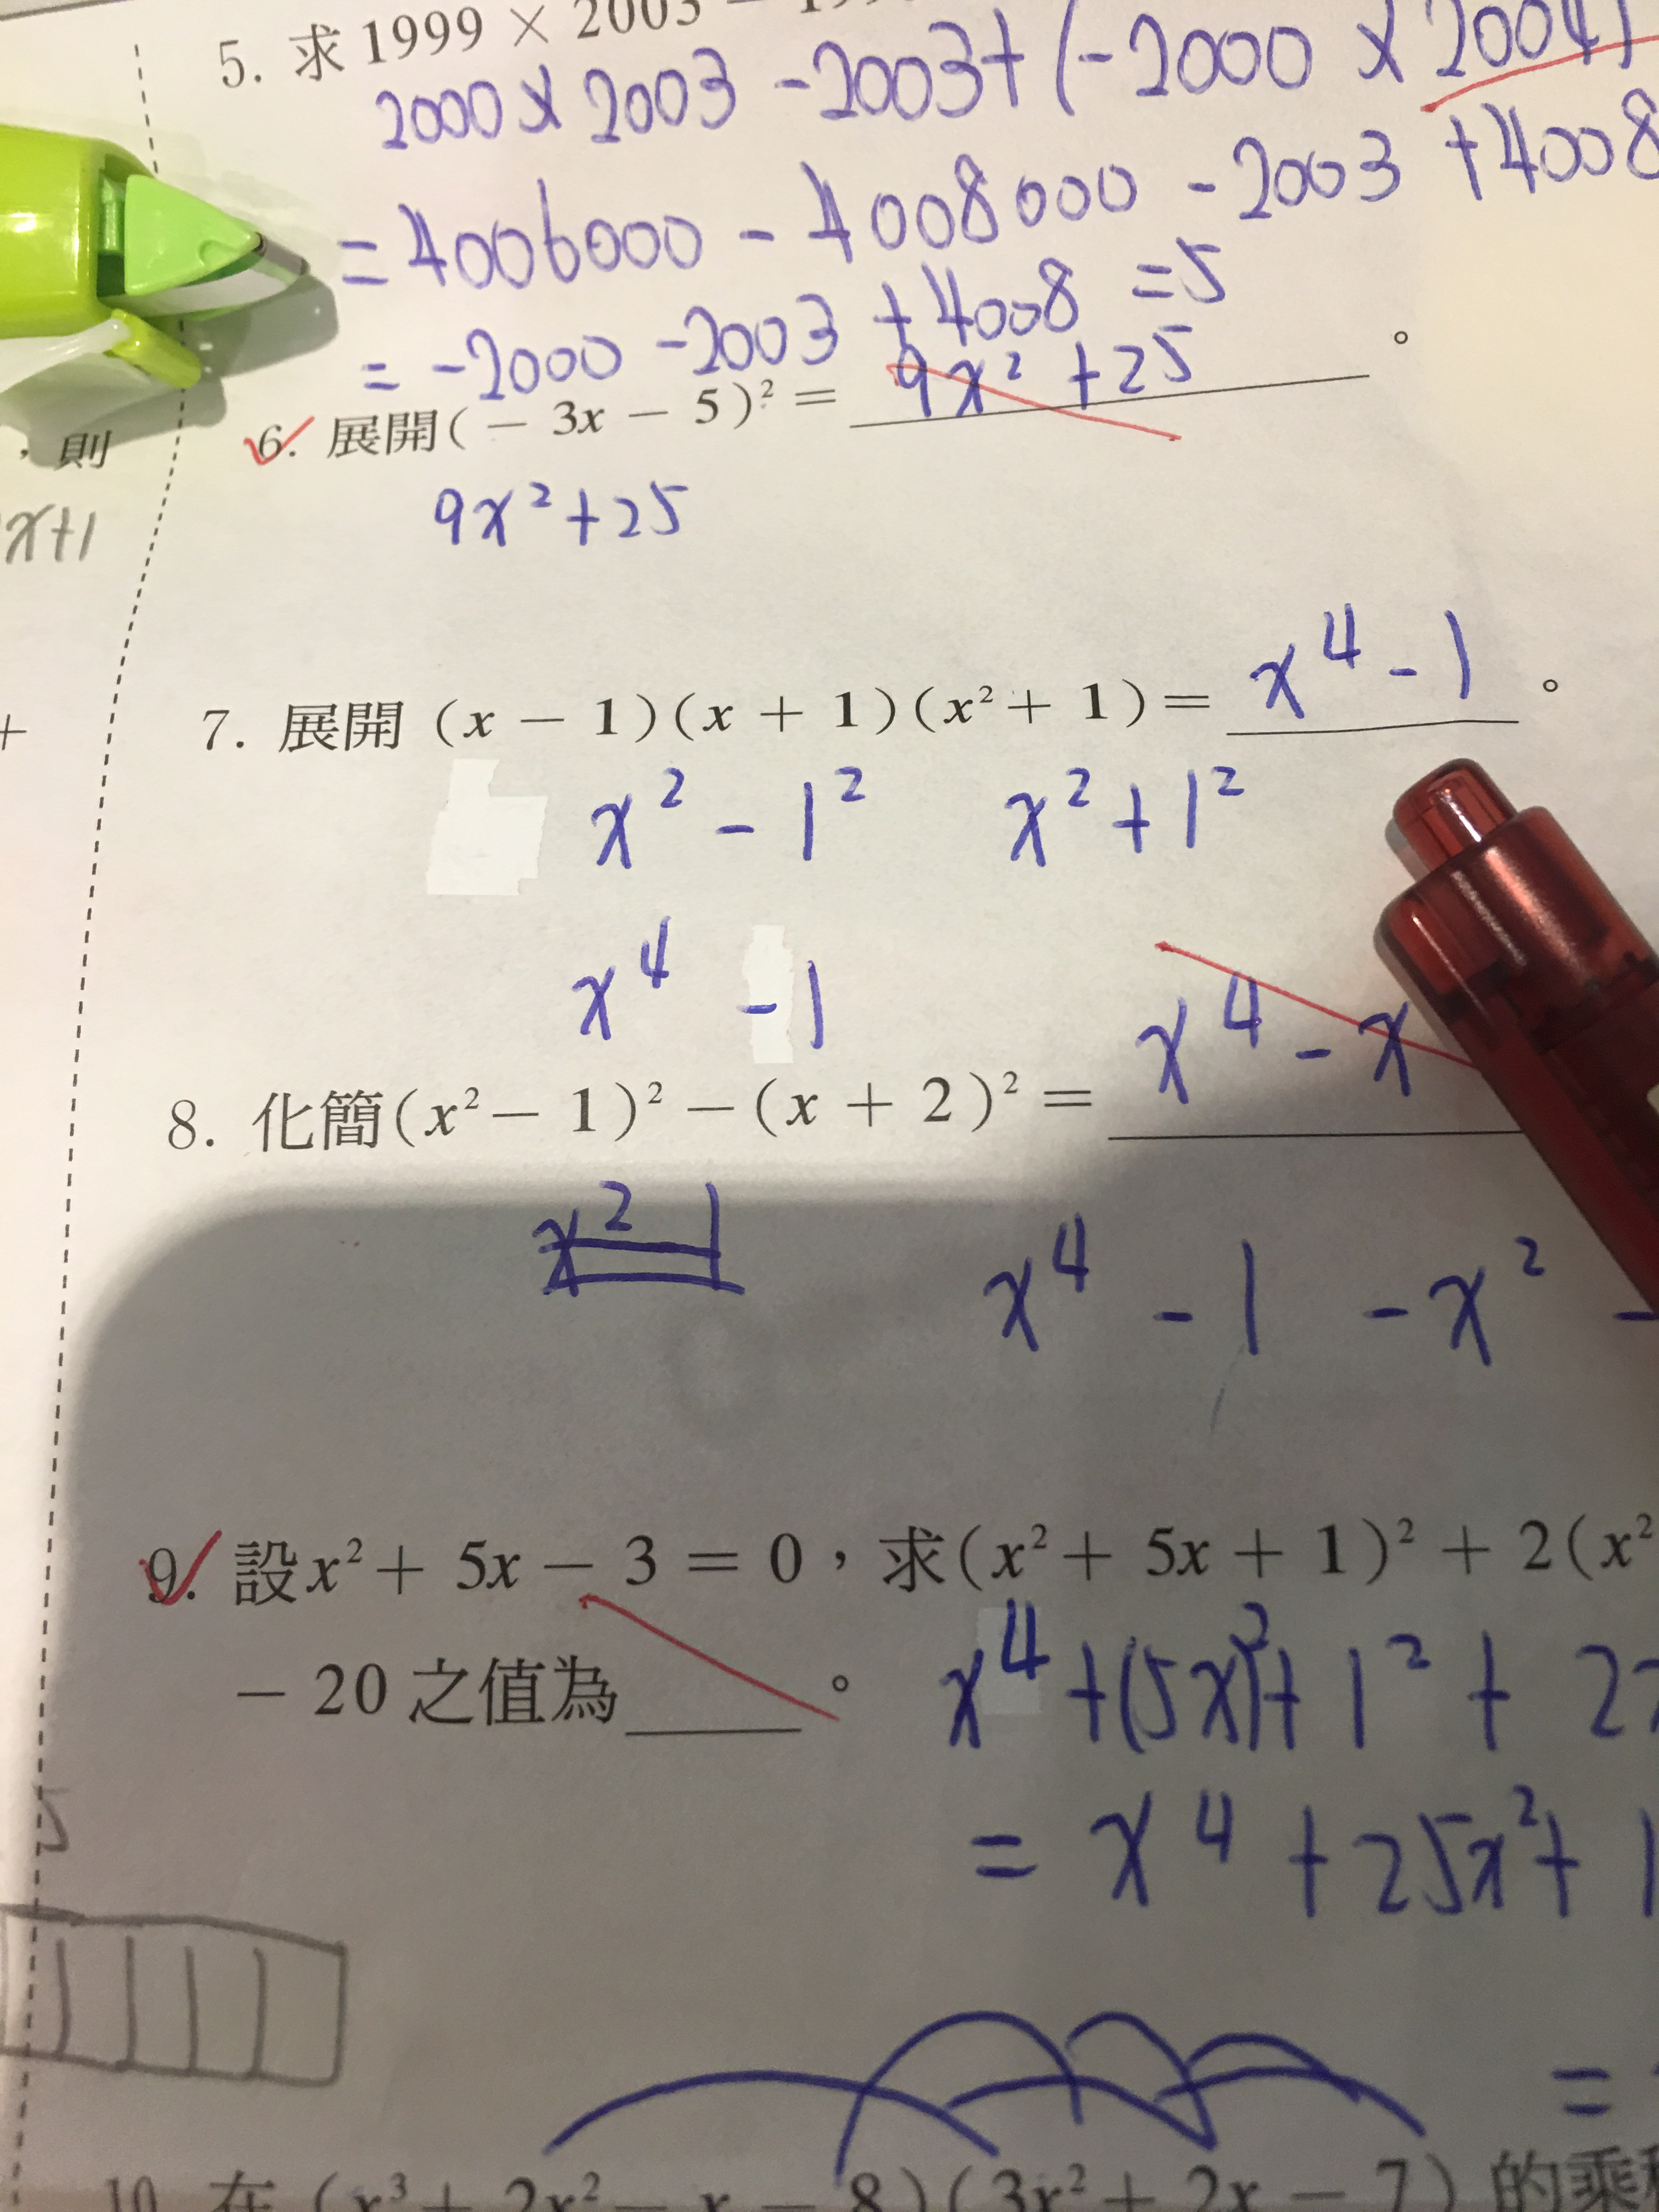 5. 求 1999 × 2003 −
2000 × 2003 − 2003 + (−2000 × 2004)
= 4006000 − 4008000 − 2003 + 4008
= −2000 − 2003 + 4008 = 5
6. 展開(− 3x − 5)² = 9x² + 25 。
，則
9x² + 25
x+1
7. 展開 (x − 1)(x + 1)(x² + 1) = x⁴ − 1 。
+
x² − 1² x² + 1²
x⁴ − 1
8. 化簡(x² − 1)² − (x + 2)² = x⁴ − x
x² 1
x⁴ − 1 − x² −
9. 設x² + 5x − 3 = 0，求(x² + 5x + 1)² + 2(x²
− 20 之值為 。
x⁴ + (5x)² + 1² + 2
= x⁴ + 25x² + 1
5
=
10. 在 (x³ + 2x² − x − 8)(3x² + 2x − 7) 的乘